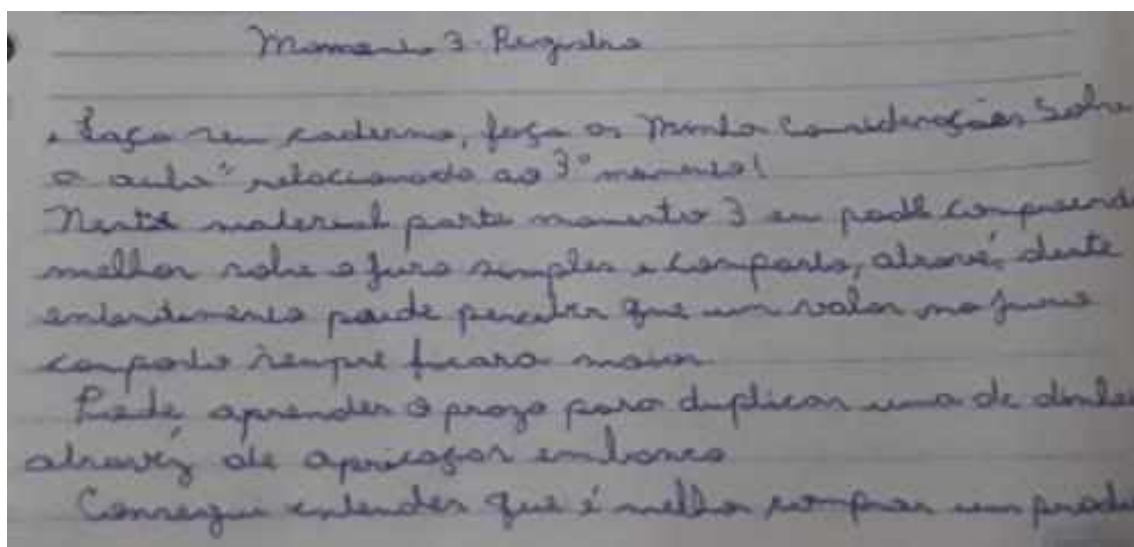 Momento 3 - Registro
. Faça seu caderno, faça os Minha Considerações Sobre
a aula" relacionado ao 3º momento!
Neste material parte momento 3 eu pode compreend
melhor sobre o juro simples e composto, através deste
entendimento pode perceber que um valor no juros
composto sempre ficara maior
Pode, aprender o prazo para duplicar uma de
através de em banco
Consegui entender que é melhor comprar um produ